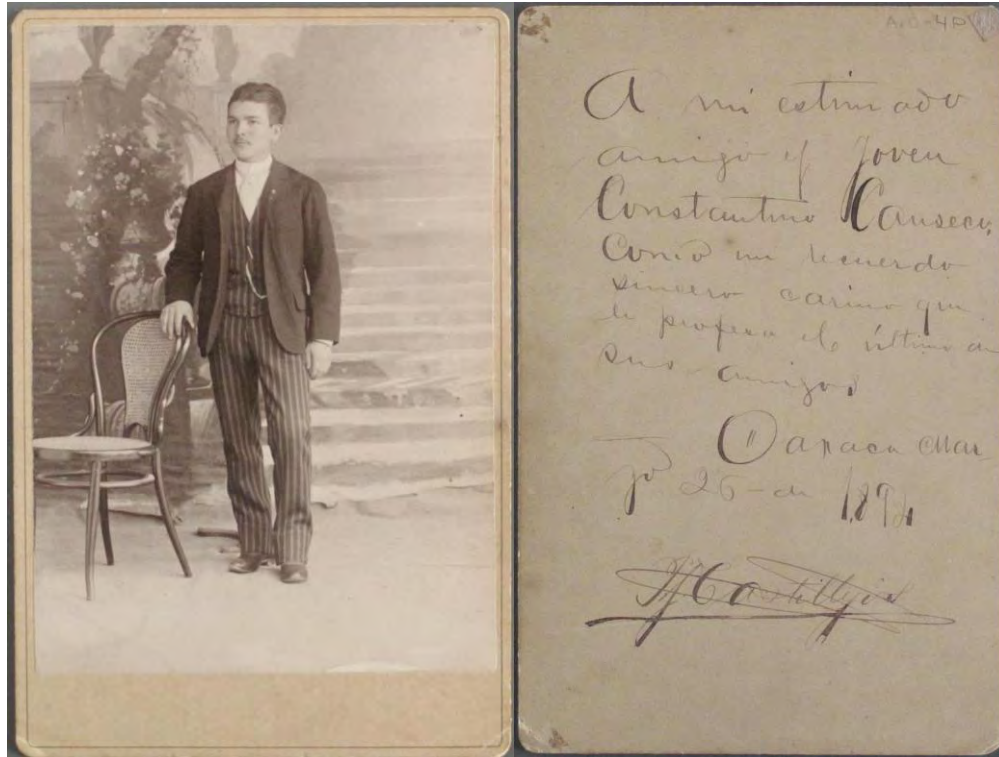 A mi estimado
amigo el Joven
Constantino Canseco,
Como un recuerdo
sincero cariño que
le profesa el último de
sus amigos
Oaxaca Mar
zo 26 de 1892
Castillejos